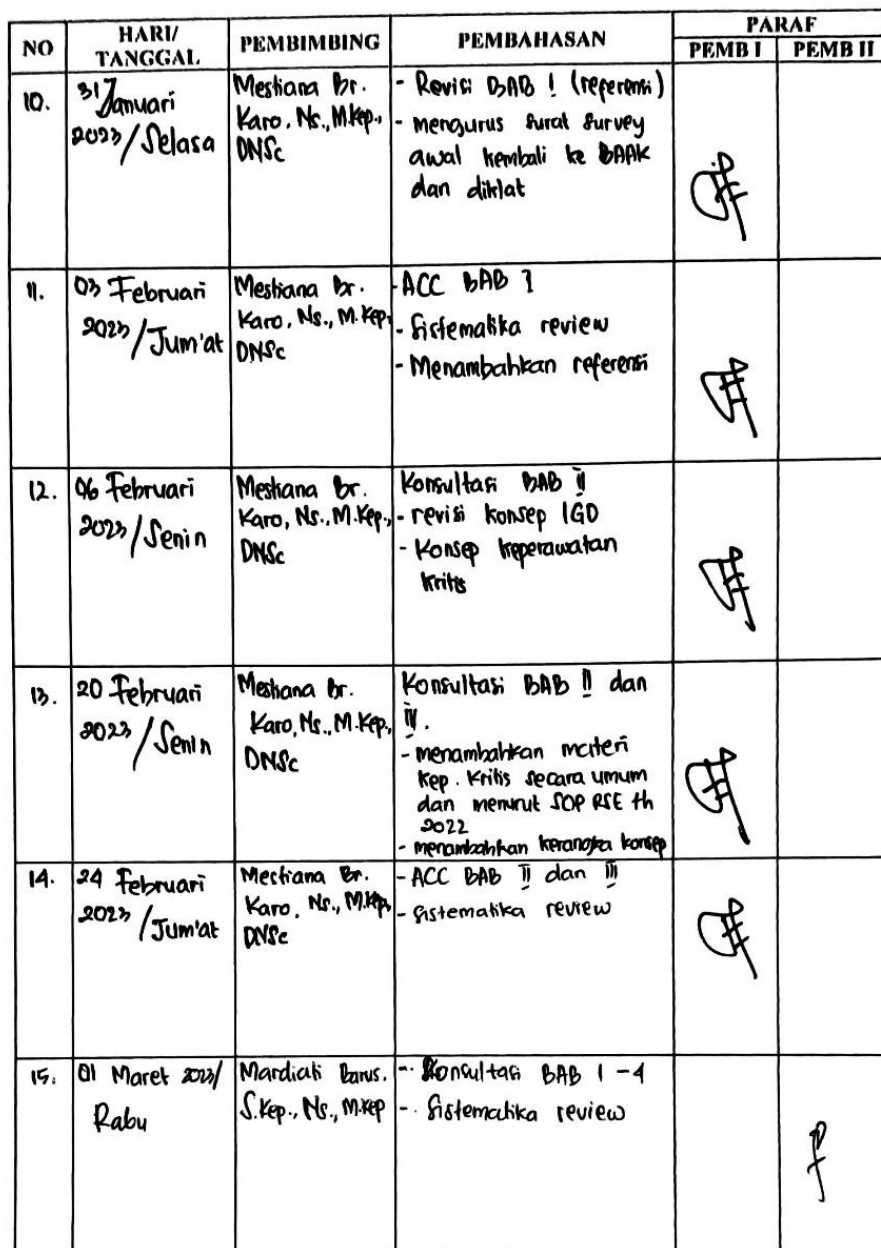 NO
HARI/
TANGGAL
PEMBIMBING
PEMBAHASAN
PARAF
PEMB I
PEMB II
10.
31 Januari
2023/Selasa
Mestiana Br.
Karo, Ns., M.Kep.,
DNSc
- Revisi BAB I (referensi)
- mengurus surat survey
awal kembali ke BAAK
dan diklat
11.
03 Februari
2023/Jum'at
Mestiana Br.
Karo, Ns., M.Kep.,
DNSc
- ACC BAB I
- Sistematika review
- Menambahkan referensi
12.
06 Februari
2023/Senin
Mestiana Br.
Karo, Ns., M.Kep.,
DNSc
Konsultasi BAB II
- revisi konsep IGD
- Konsep keperawatan
kritis
13.
20 Februari
2023/Senin
Mestiana Br.
Karo, Ns., M.Kep.,
DNSc
Konsultasi BAB II dan
- menambahkan materi
Kep. Kritis secara umum
dan menurut SOP RSE th
2022
- menambahkan kerangka konsep
14.
24 Februari
2023/Jum'at
Mestiana Br.
Karo, Ns., M.Kep,
DNSc
- ACC BAB II dan III
- sistematika review
15.
01 Maret 2023/
Rabu
Mardiati Barus.
S.Kep., Ns., M.Kep
- Konsultasi BAB 1 - 4
- Sistematika review